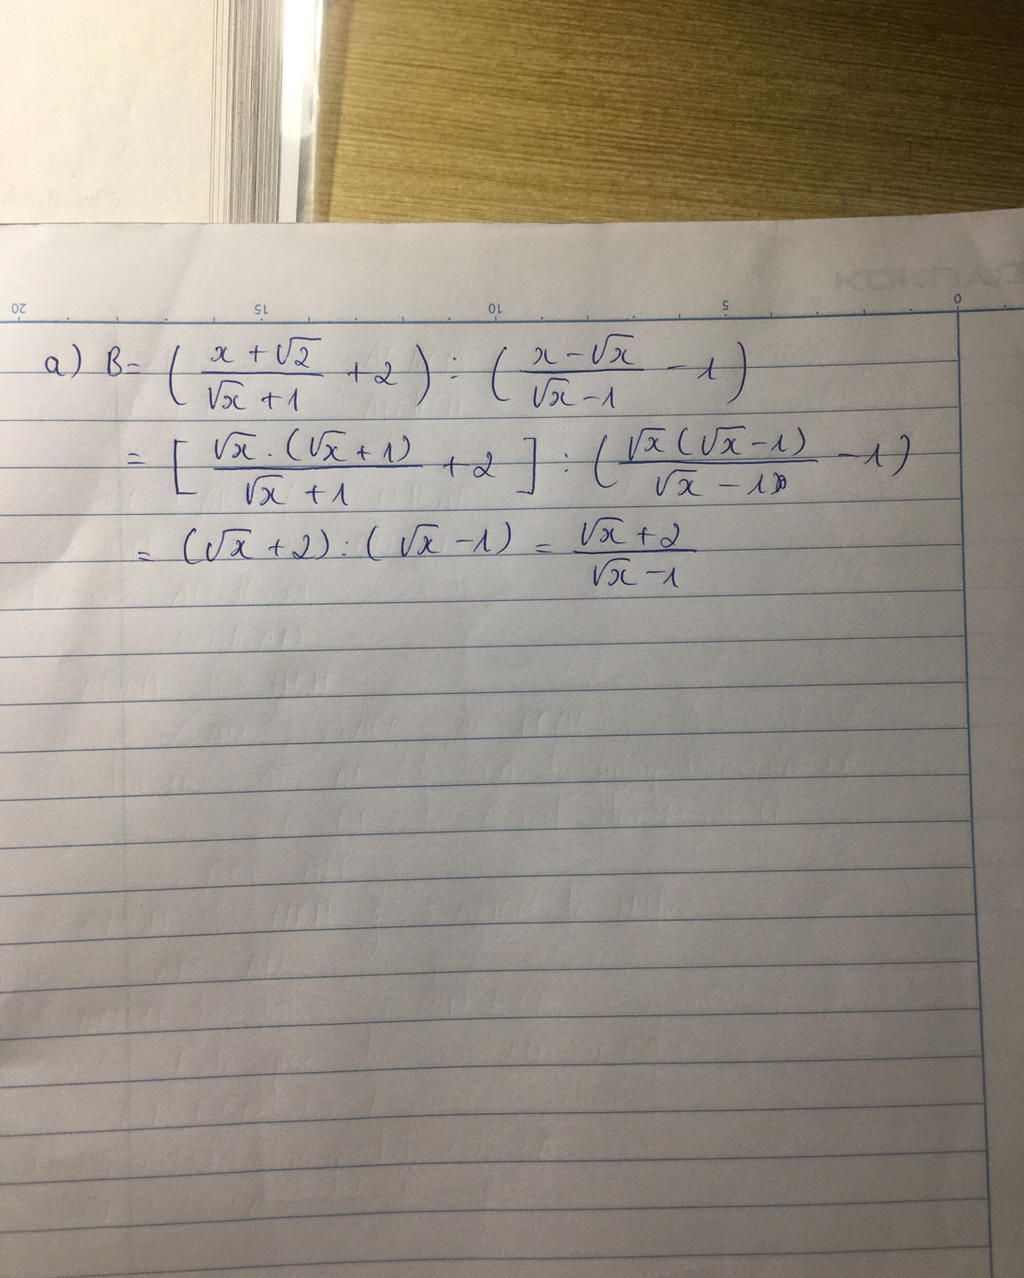 20 15 10 5 0
a) B = ( (x + √2)/(√x + 1) + 2 ) : ( (x - √x)/(√x - 1) - 1 )
= [ (√x . (√x + 1))/(√x + 1) + 2 ] : ( (√x (√x - 1))/(√x - 1) - 1 )
= (√x + 2) : (√x - 1) = (√x + 2)/(√x - 1)